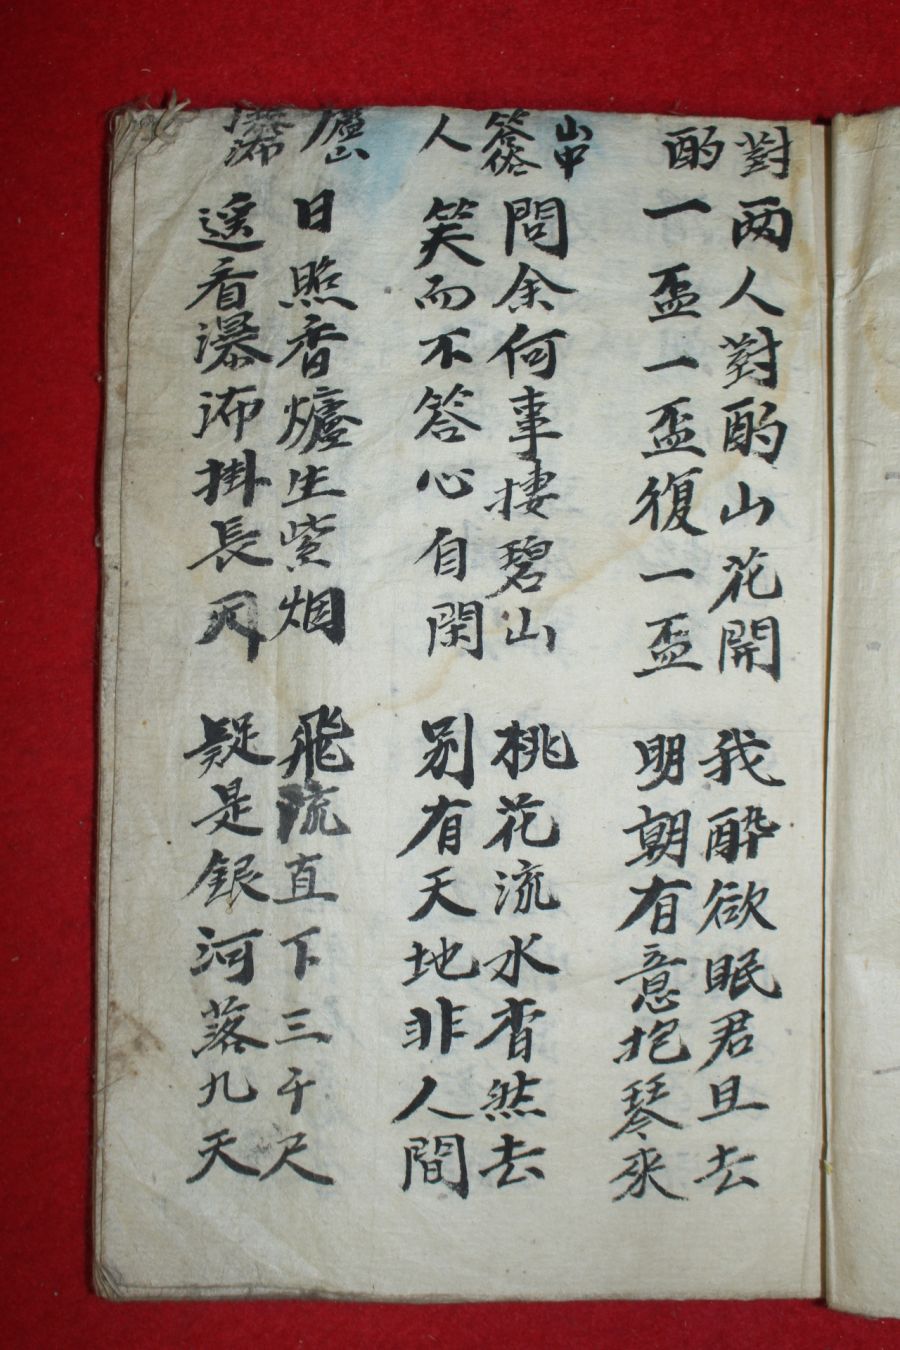 對酌
两人對酌山花開 我酔欲眠君且去
一盃一盃復一盃 明朝有意抱琴來
山中答俗人
問余何事捿碧山 桃花流水杳然去
笑而不答心自閑 別有天地非人間
廬山瀑沛
日照香爐生紫烟 飛流直下三千尺
遙看瀑沛掛長川 疑是銀河落九天